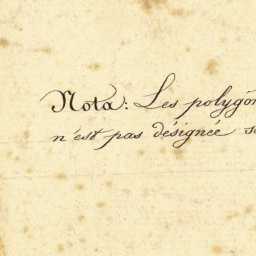 Nota: Les polygô
n'est pas désignée s